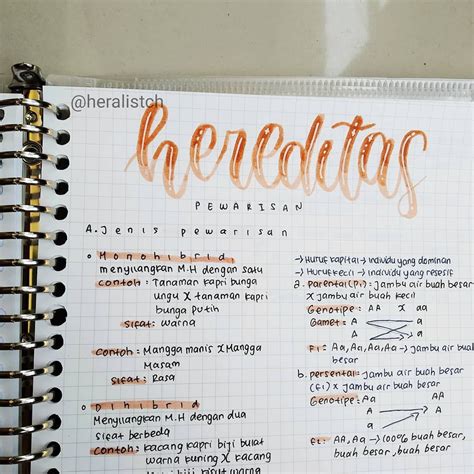 @heralistch
hereditas
PEWARISAN
A. Jenis pewarisan
Monohibrid
menyilangkan M.H dengan satu
contoh : Tanaman kapri bunga
ungu X tanaman kapri
bunga putih
Sifat : warna
Contoh : Mangga manis X Mangga
Masam
Sifat : Rasa
Dihibrid
Menyilangkan M.H dengan dua
sifat berbeda
Contoh : kacang kapri biji bulat
warna kuning X kacang
kapri biji kisut warna
→ Huruf kapital → individu yang dominan
→ Huruf kecil → individu yang resesif
a. parental (P1) : jambu air buah besar
X jambu air buah kecil
Genotipe : AA X aa
Gamet : A a
A a
F1 : Aa, Aa, Aa, Aa → jambu air buah
besar
b. persental : jambu air buah besar
(F1) X jambu air buah besar
Genotipe : Aa Aa
A A
a
F2 : AA, Aa → 100% buah
besar, buah besar